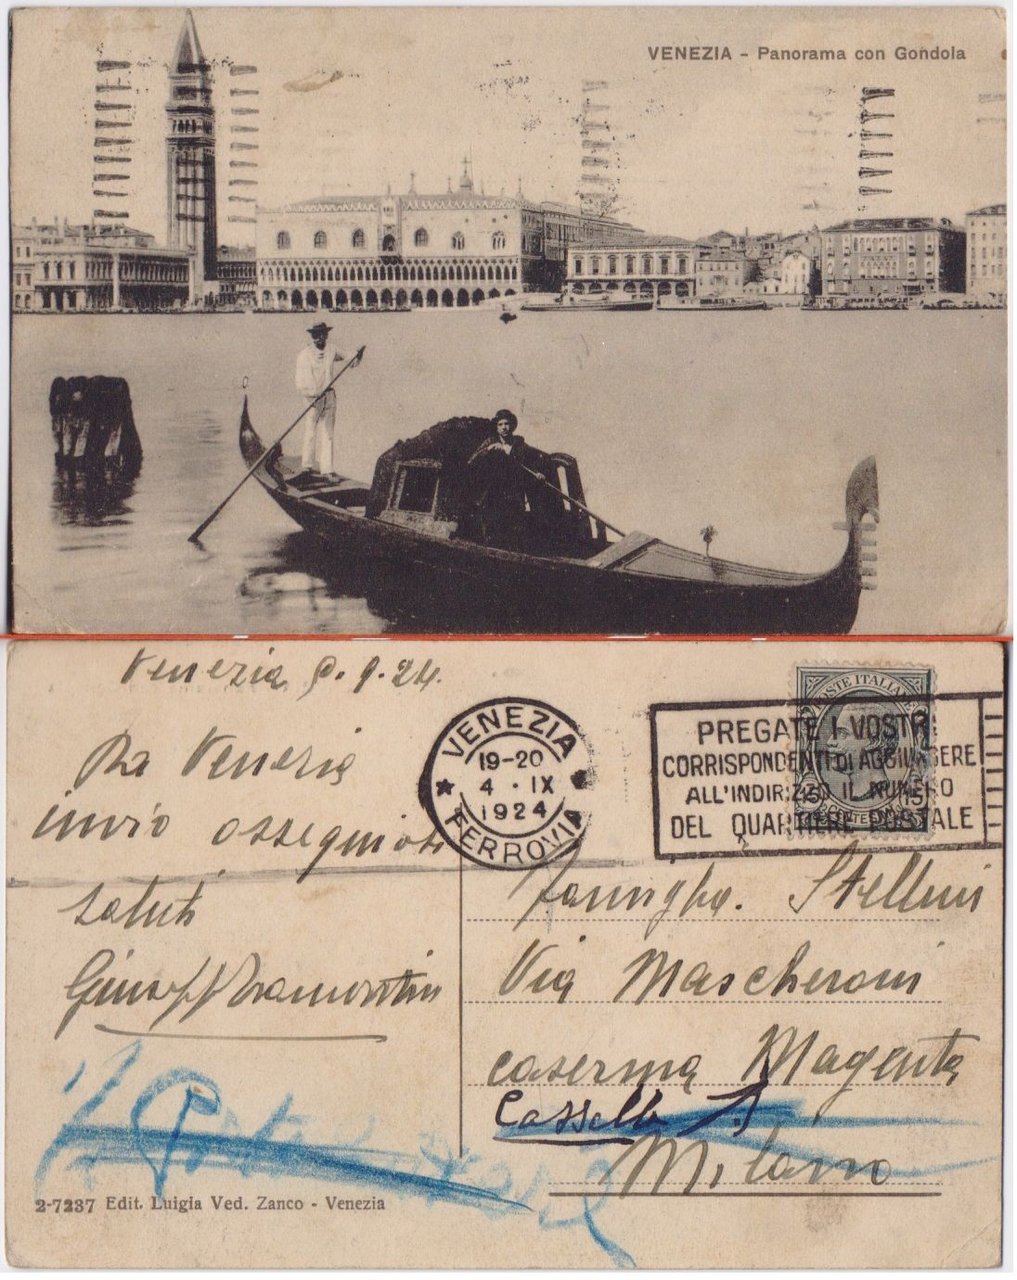 VENEZIA - Panorama con Gondola
Venezia 9.24.
Da Venezia
invio ossequiosi
saluti
VENEZIA
19-20
4 · IX
1924
FERROVIA
POSTE ITALIANE
15 15
CENTESIMI
PREGATE I VOSTRI
CORRISPONDENTI DI AGGIUNGERE
ALL'INDIRIZZO IL NUMERO
DEL QUARTIERE POSTALE
Via Mascheroni
caserma Magenta
Milano
2-7237 Edit. Luigia Ved. Zanco - Venezia